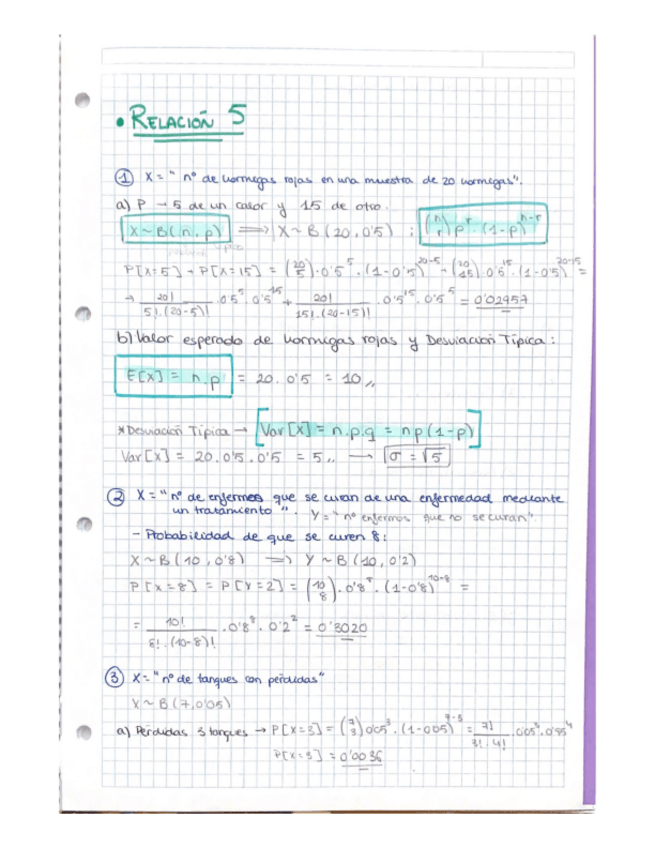 • RELACIÓN 5
① X = " nº de hormigas rojas en una muestra de 20 hormigas".
a) P → 5 de un color y 15 de otro.
X ~ B(n, p) ⟹ X ~ B (20, 0'5) ; (n r) p^r · (1-p)^n-r
P[X=5] + P[X=15] = (20 5) · 0'5^5 · (1-0'5)^20-5 + (20 15) · 0'5^15 · (1-0'5)^20-15 =
→ 20! / 5! · (20-5)! · 0'5^5 · 0'5^15 + 20! / 15! · (20-15)! · 0'5^15 · 0'5^5 = 0'02957
b) Valor esperado de hormigas rojas y Desviación Típica :
E[X] = n · p = 20 · 0'5 = 10 ,,
* Desviación Típica → Var[X] = n · p · q = np(1-p)
Var[X] = 20 · 0'5 · 0'5 = 5 ,, → σ = √5
② X = " nº de enfermos que se curan de una enfermedad mediante
un tratamiento ". Y = " nº enfermos que no se curan".
- Probabilidad de que se curen 8 :
X ~ B (10, 0'8) ⟹ Y ~ B (10, 0'2)
P[X=8] = P[Y=2] = (10 8) · 0'8^8 · (1-0'8)^10-8 =
= 10! / 8! · (10-8)! · 0'8^8 · 0'2^2 = 0'3020
③ X = " nº de tanques con pérdidas"
X ~ B (7, 0'05)
a) Pérdidas 3 tanques → P[X=3] = (7 3) 0'05^3 · (1-0'05)^7-3 = 7! / 3! · 4! · 0'05^3 · 0'95^4
P[X=3] = 0'0036